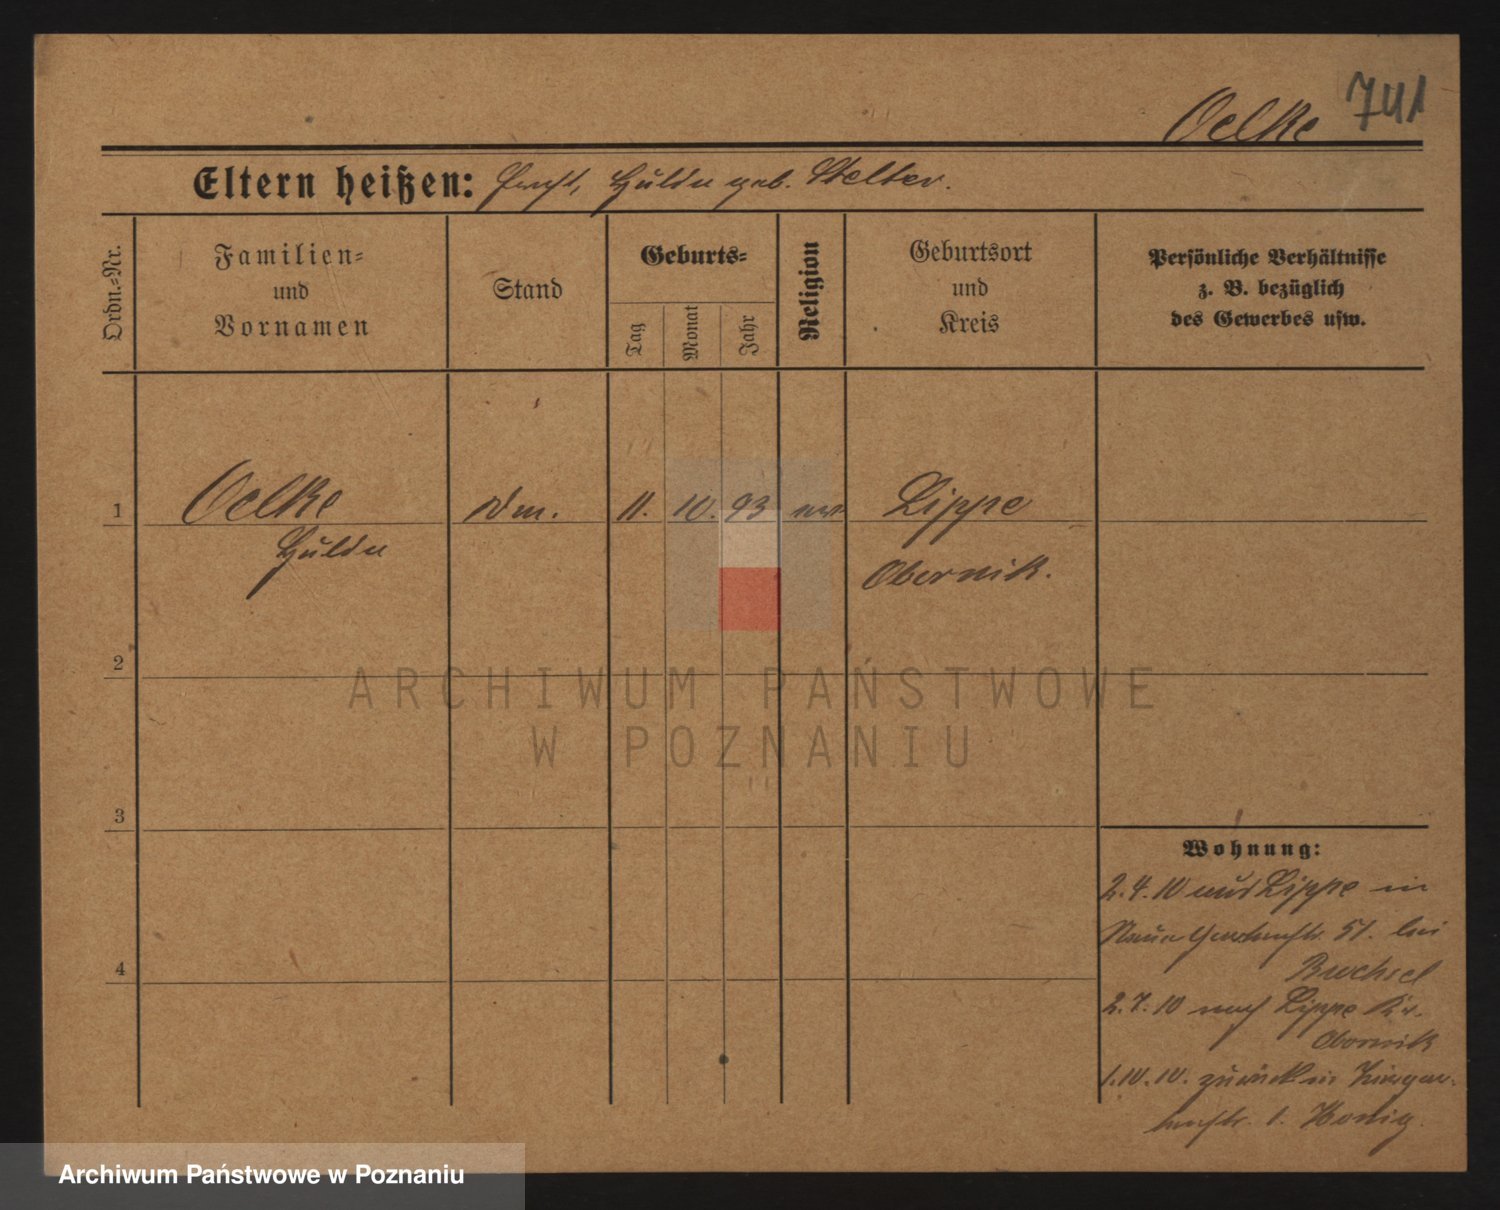 741
Oelke
Eltern heißen: geb. Stelter.
Ordn.=Nr.
Familien=
und
Vornamen
Stand
Geburts=
Tag
Monat
Jahr
Religion
Geburtsort
und
Kreis
Persönliche Verhältnisse
z. B. bezüglich
des Gewerbes usw.
1
Oelke
Hulda
11. 10. 93
Lippe
Obornik.
2
3
4
Wohnung:
2.4.10 aus Lippe in
Neue Gartenstr. 51. bei
2.7.10 nach Lippe Kr.
Obornik
1.10.10. zurück in
1. Honig.
ARCHIWUM PAŃSTWOWE
W POZNANIU
Archiwum Państwowe w Poznaniu